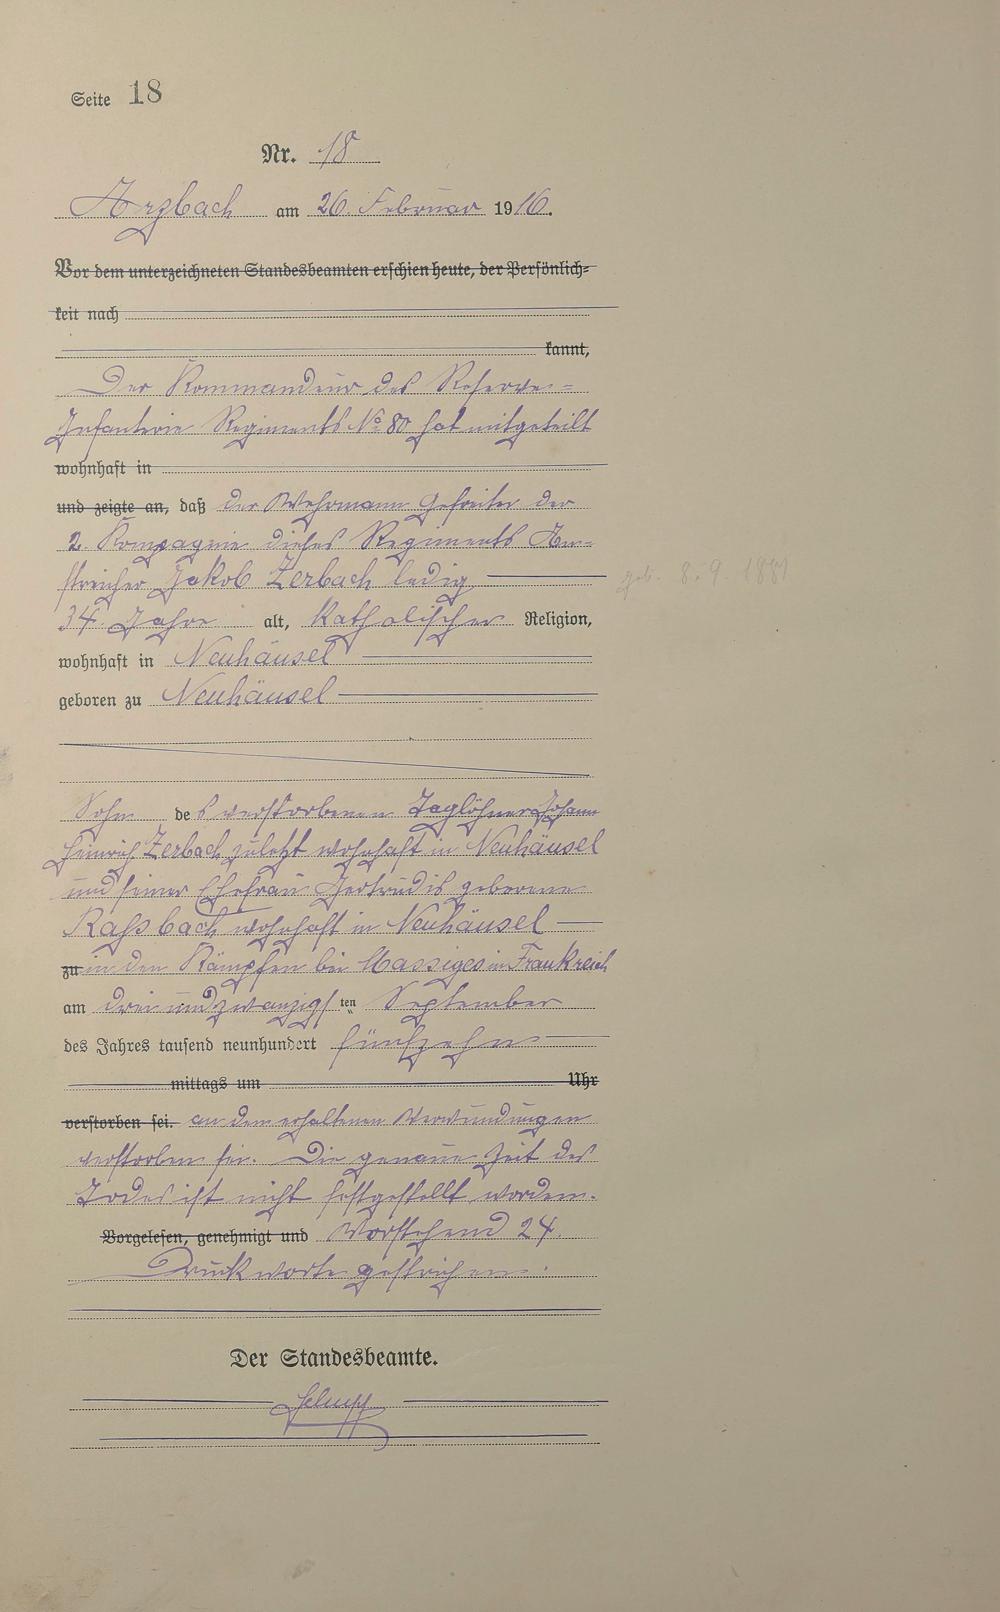 Seite 18
Nr. 18
Arzbach am 26. Februar 1916.
Vor dem unterzeichneten Standesbeamten erschien heute, der Persönlich-
keit nach
kannt,
Der Kommandeur des Reserve-
Infanterie Regiments No 80 hat mitgeteilt
wohnhaft in
und zeigte an, daß der Wehrmann Gefreiter der
2. Kompagnie dieses Regiments An-
streicher Jakob Zerbach ledig
geb. 8.9.1881
34 Jahre alt, katholischer Religion,
wohnhaft in Neuhäusel
geboren zu Neuhäusel
Sohn des verstorbenen Taglöhners Johann
Heinrich Zerbach zuletzt wohnhaft in Neuhäusel
und seiner Ehefrau Gertrudis geborene
wohnhaft in Neuhäusel
zu in den Kämpfen bei Massiges in Frankreich
am drei und zwanzigsten September
des Jahres tausend neunhundert fünfzehn
mittags um Uhr
verstorben sei. an den erhaltenen Verwundungen
verstorben sei. Die genaue Zeit des
Todes ist nicht festgestellt worden.
Vorgelesen, genehmigt und Vorstehend 24
Druckworte gestrichen.
Der Standesbeamte.